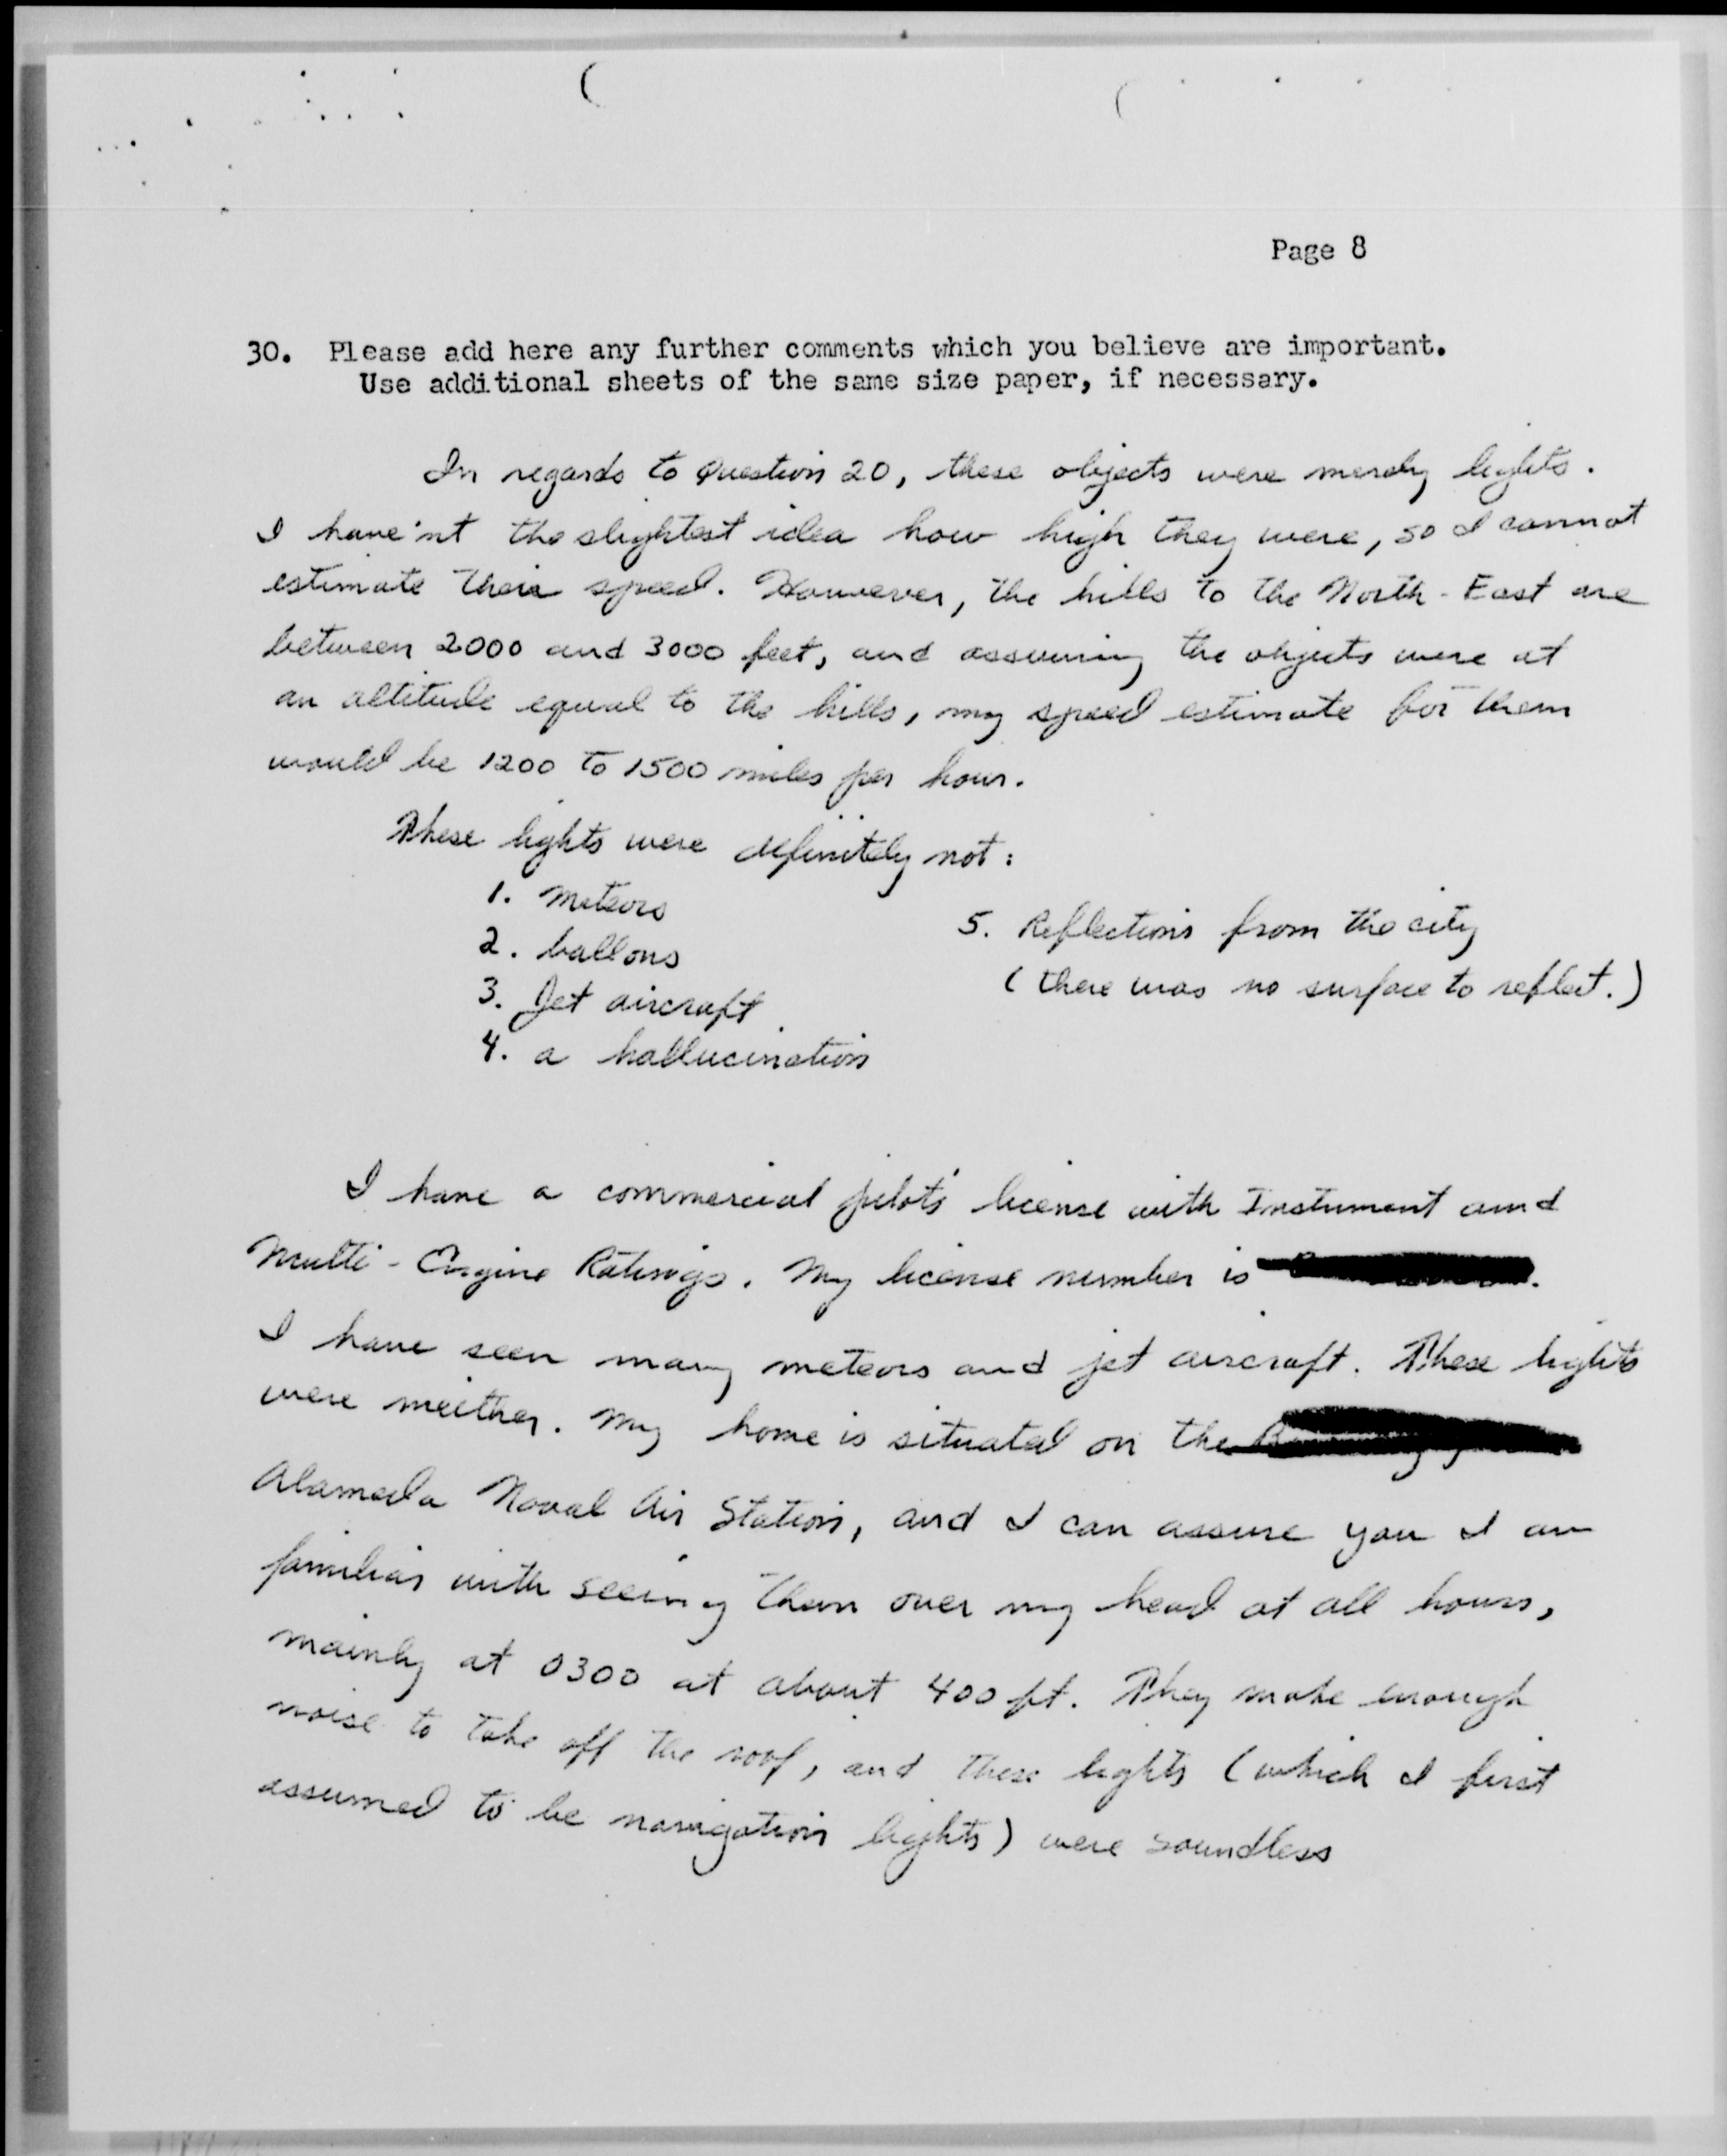 Page 8
30. Please add here any further comments which you believe are important.
Use additional sheets of the same size paper, if necessary.
In regards to Question 20, these objects were merely lights.
I have'nt the slightest idea how high they were, so I cannot
estimate their speed. However, the hills to the North-East are
between 2000 and 3000 feet, and assuming the objects were at
an altitude equal to the hills, my speed estimate for them
would be 1200 to 1500 miles per hour.
These lights were definitely not:
1. Meteors
2. ballons
3. Jet aircraft
4. a hallucination
5. Reflections from the city
(there was no surface to reflect.)
I have a commercial pilot's license with Instument and
Multi-Engine Ratings. My license number is
I have seen many meteors and jet aircraft. These lights
were neither. My home is situated on the
Alameda Naval Air Station, and I can assure you I am
familiar with seeing them over my head at all hours,
mainly at 0300 at about 400 ft. They make enough
noise to take off the roof, and these lights (which I first
assumed to be navigation lights) were soundless